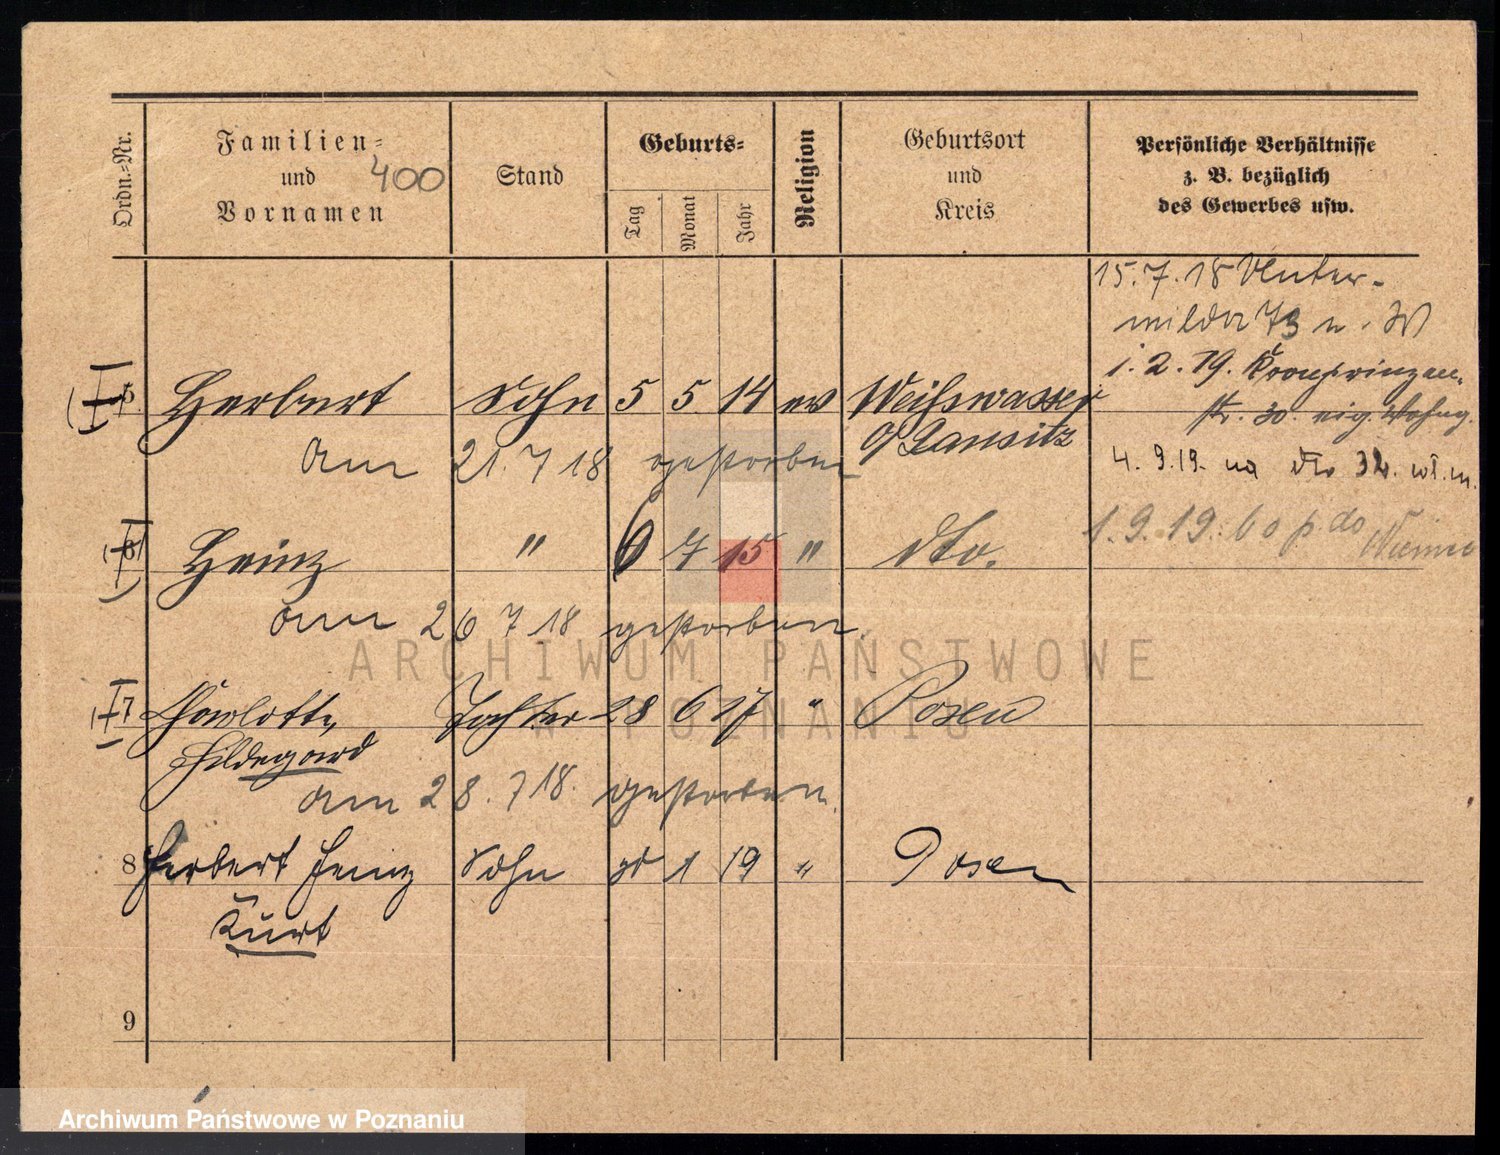 Ordn.-Nr.
Familien-
und
Vornamen
400
Stand
Geburts-
Tag
Monat
Jahr
Religion
Geburtsort
und
Kreis
Persönliche Verhältnisse
z. B. bezüglich
des Gewerbes usw.
15.7.18 Unter-
wilda 73 n. W
1.2.19. Kronprinzen-
str. 30. eig. Wohng.
4.9.19. na dto 32.
1.9.19.
5 Herbert Sohn 5 5 14 ev Weißwasser
O/Lausitz
am 21.7 18 gestorben
6 Heinz " 6 7 15 " dto.
am 26 7 18 gestorben.
7 Charlotte, Tochter 28 6 17 " Posen
Hildegard
am 28.7 18. gestorben.
8 Herbert Heinz Sohn 1 19 " Posen
Kurt
9
ARCHIWUM PAŃSTWOWE
W POZNANIU
Archiwum Państwowe w Poznaniu